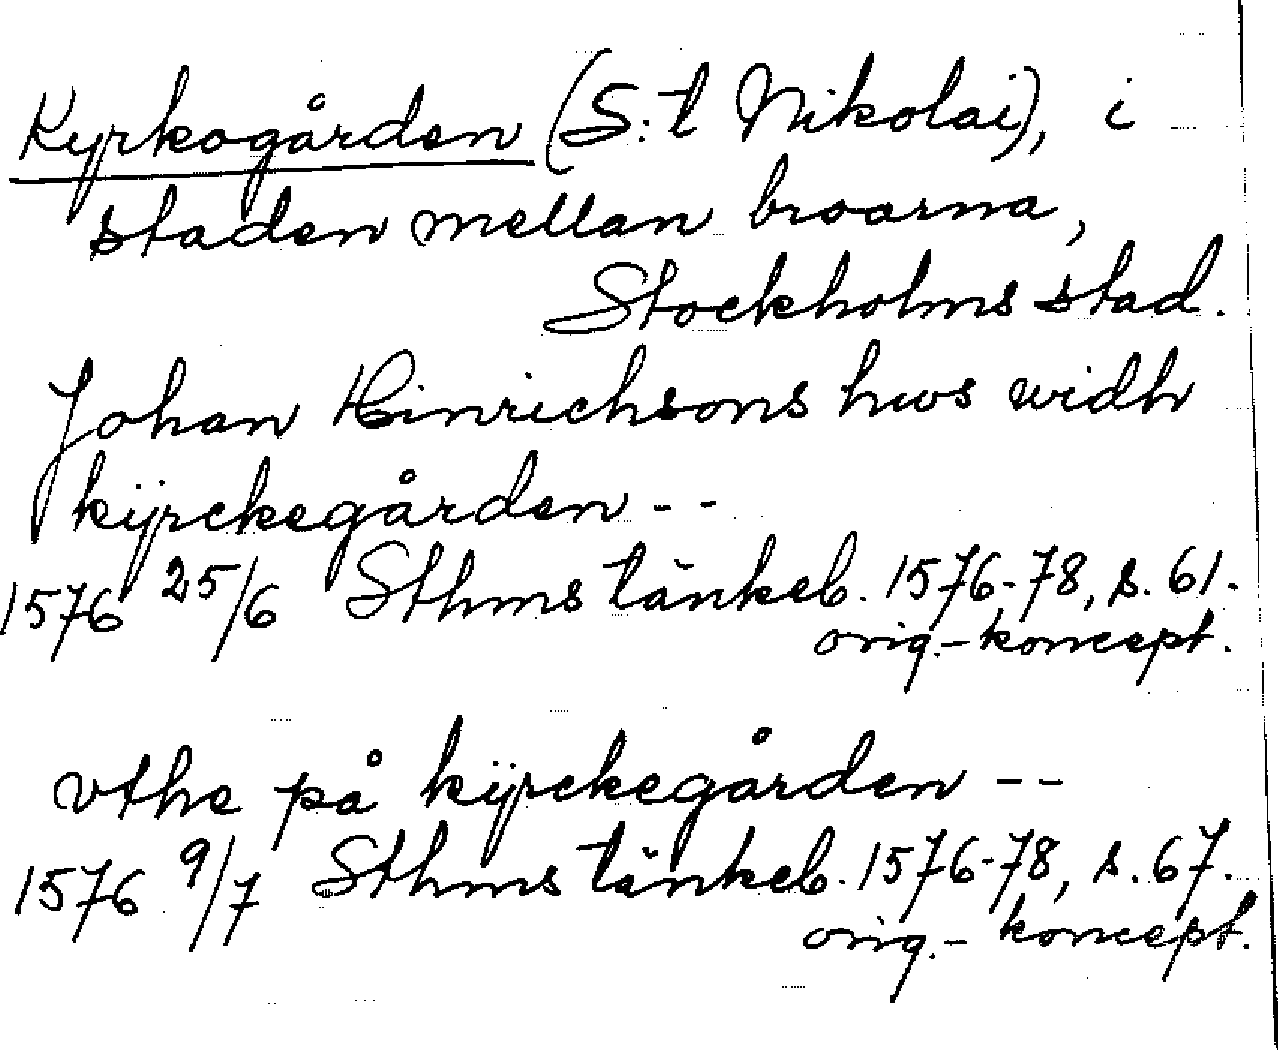 Kyrkogården (S:t Nikolai), i
staden mellan broarna,
Stockholms stad.
Johan Hinrichsons hws widh
kÿrckegården - -
1576 25/6 Sthms tänkeb. 1576-78, s. 61.
orig.- koncept.
vthe på kÿrckegården - -
1576 9/7 Sthms tänkeb. 1576-78, s. 67.
orig.- koncept.